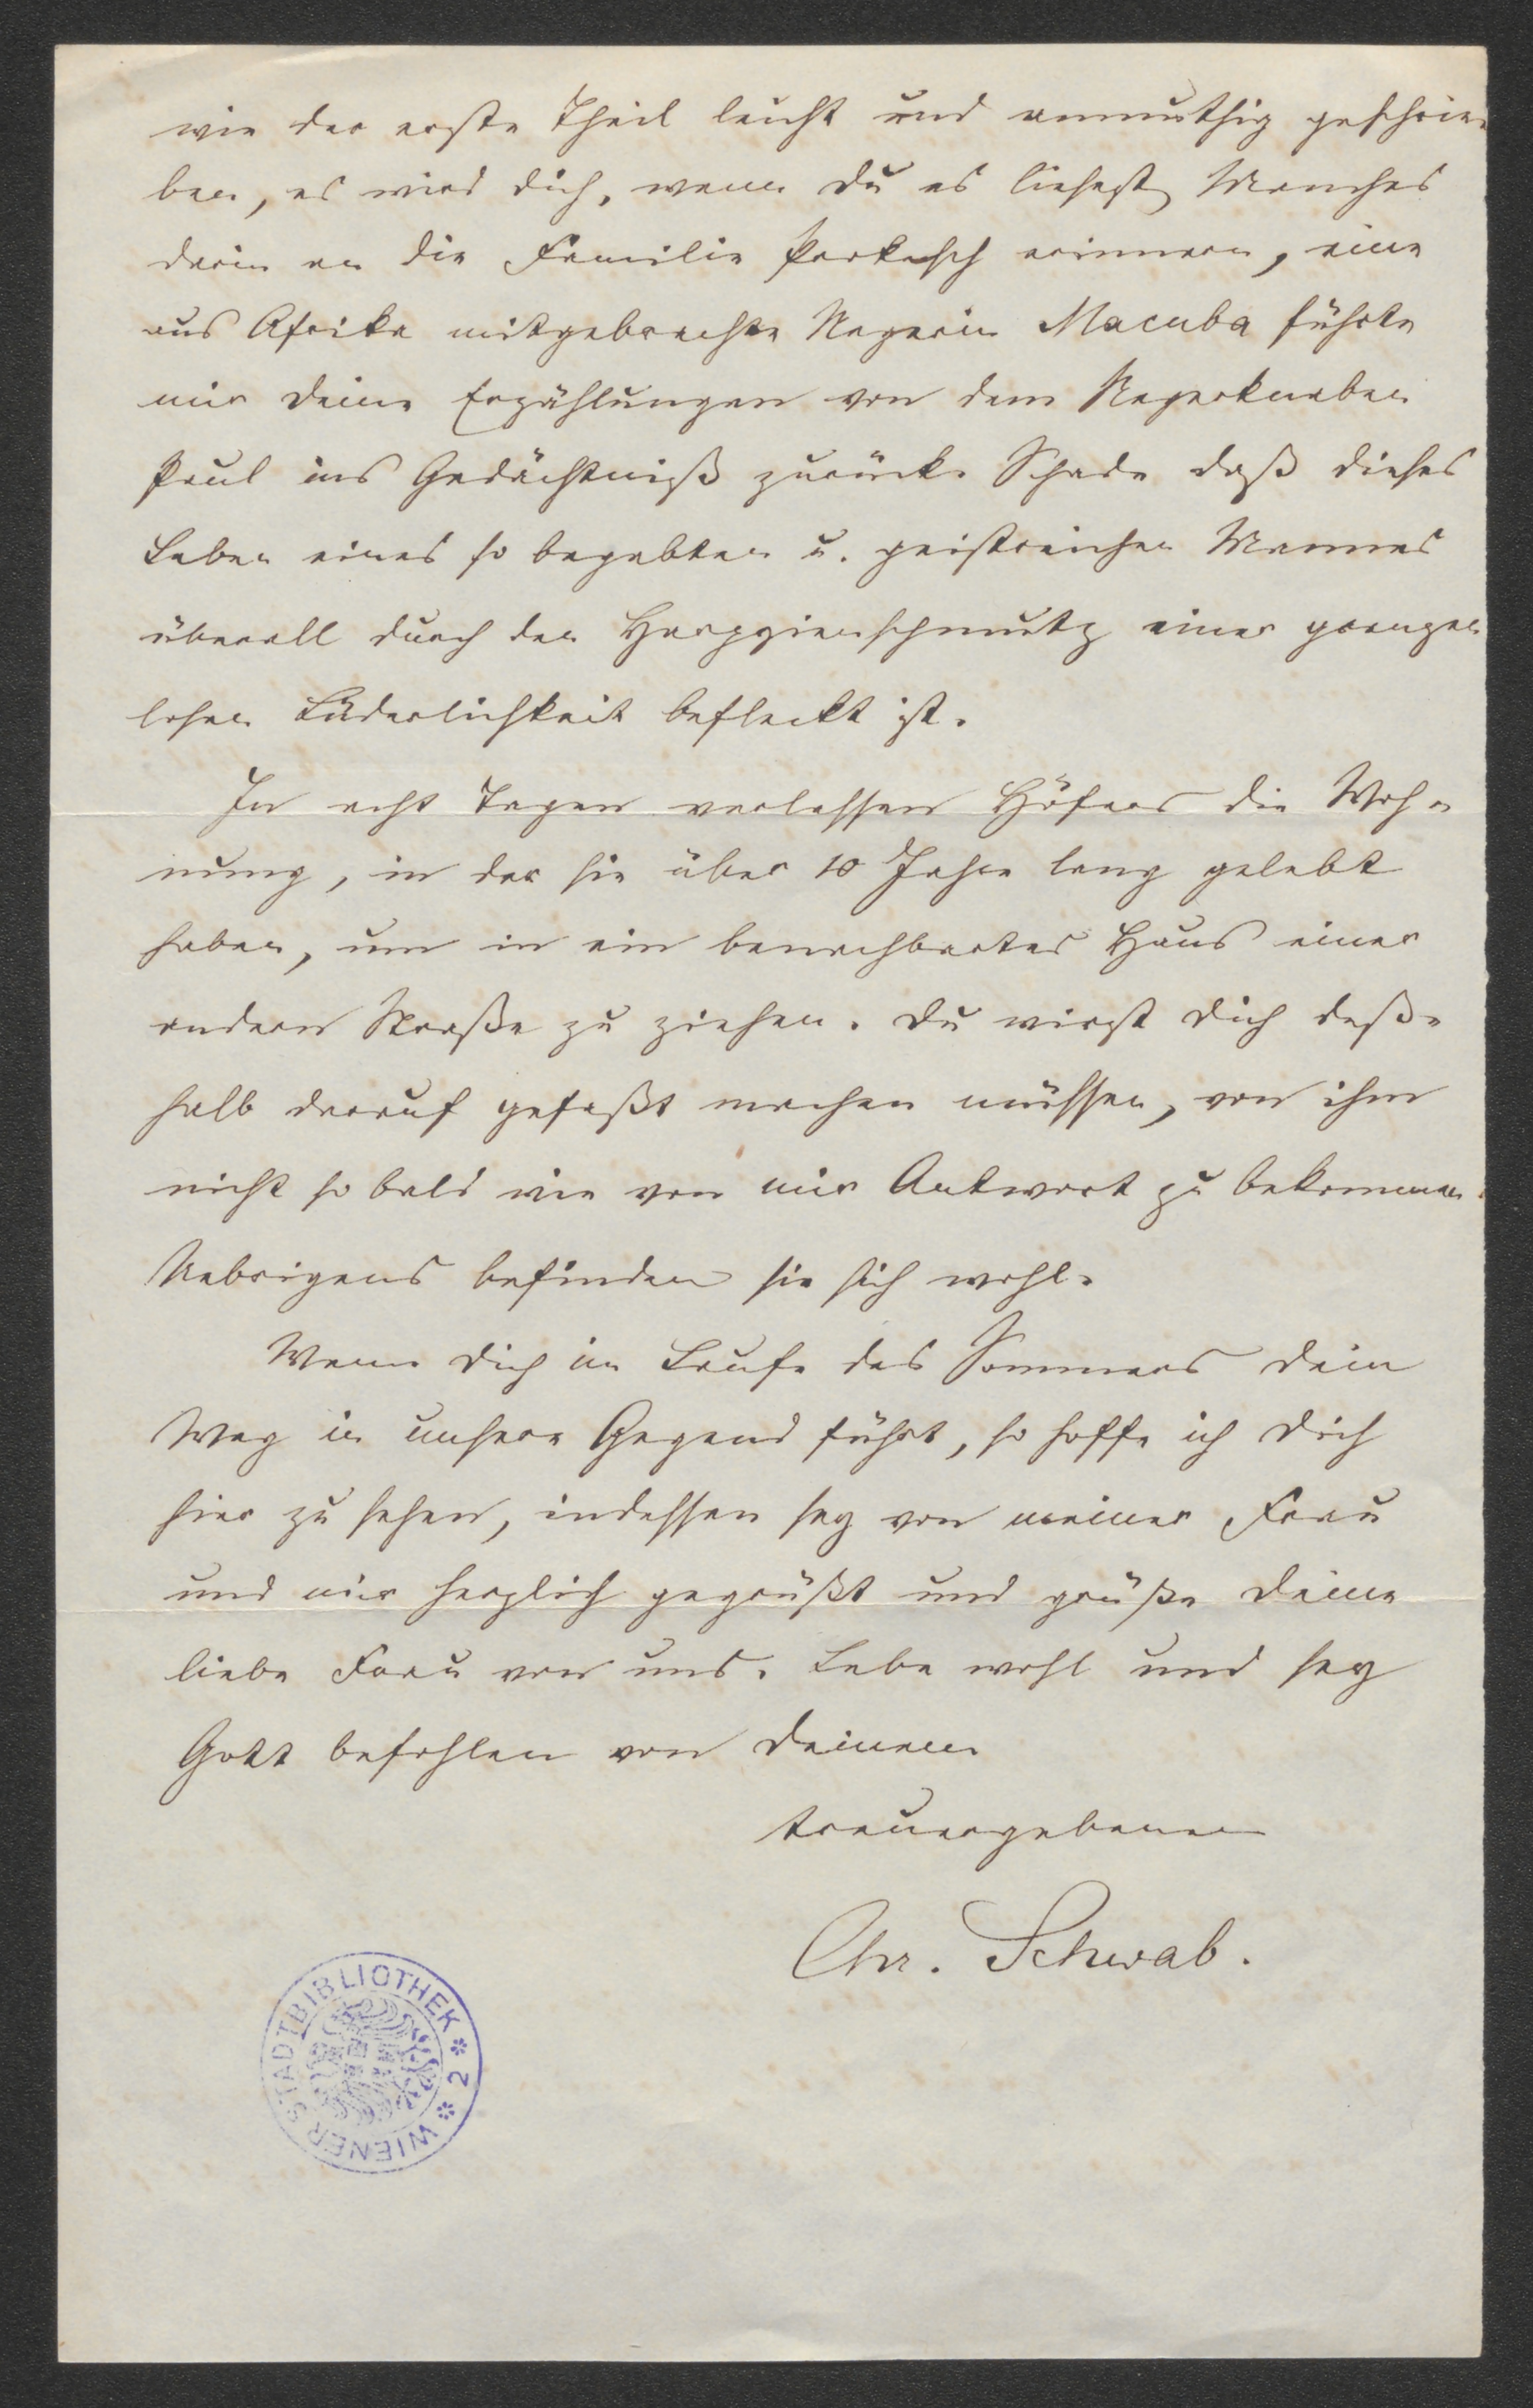 wie der erste Theil leicht und anmuthig geschrie-
ben, es wird dich, wenn du es liesest, Manches
darin an die Familie Prokesch erinnern, eine
aus Afrika mitgebrachte Negerin Macuba führte
mir deine Erzählungen von dem Negerknaben
Paul ins Gedächtniß zurück. Schade daß dieses
Leben eines so begabten u. geistreichen Mannes
überall durch den Harpyienschmutz einer grenzen
losen Lüderlichkeit befleckt ist.
In acht Tagen verlassen Höfers die Woh-
nung, in der sie über 10 Jahre lang gelebt
haben, um in ein benachbartes Haus einer
andern Straße zu ziehen. Du wirst dich deß-
halb darauf gefaßt machen müssen, von ihm
nicht so bald wie von mir Antwort zu bekommen.
Uebrigens befinden sie sich wohl.
Wenn dich im Laufe des Sommers dein
Weg in unsere Gegend führt, so hoffe ich dich
hier zu sehen, indessen sey von meiner Frau
und mir herzlich gegrüßt und grüße deine
liebe Frau von uns. Lebe wohl und sey
Gott befohlen von deinem
treuergebenen
Chr. Schwab.
WIENER STADTBIBLIOTHEK * 2 *